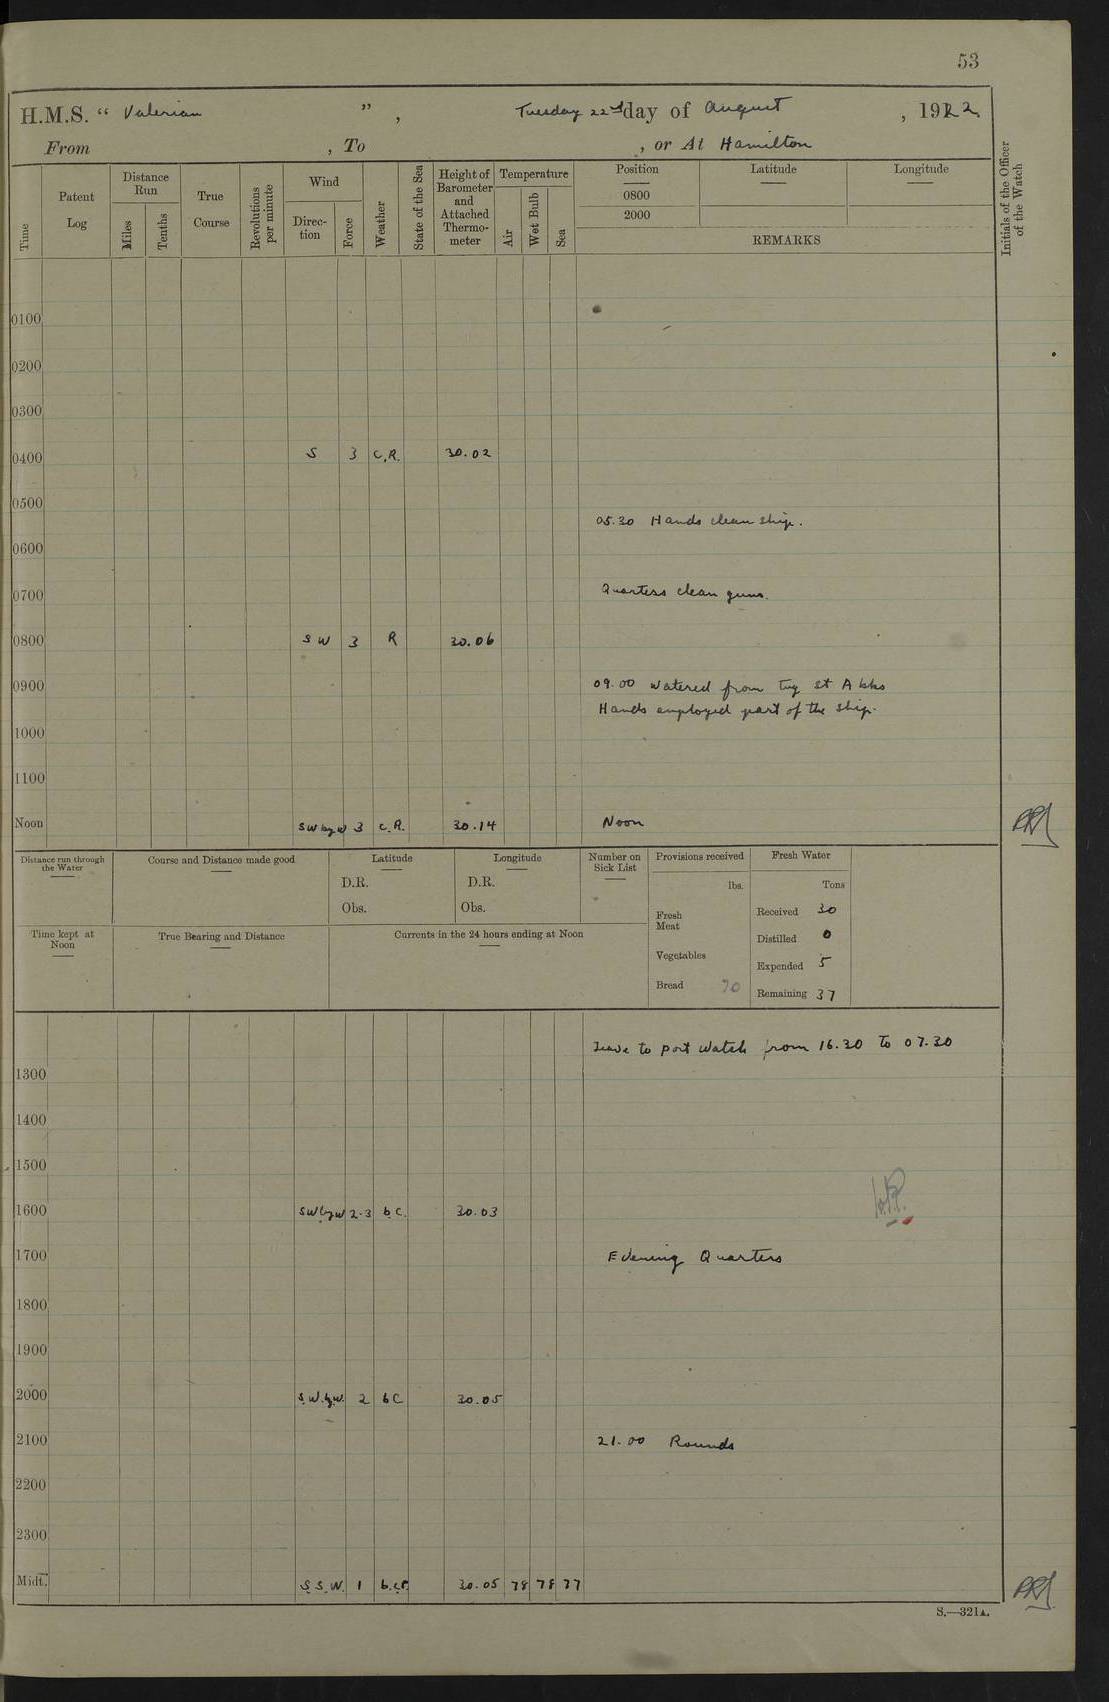 53
H.M.S. “ Valerian ” , Tuesday 22nd day of August , 1922.
From , To , or At Hamilton
Time
Patent Log
Distance Run
Miles
Tenths
True Course
Revolutions per minute
Wind
Direc-tion
Force
Weather
State of the Sea
Height of Barometer and Attached Thermo-meter
Temperature
Air
Wet Bulb
Sea
Position
0800
2000
Latitude
Longitude
REMARKS
Initials of the Officer of the Watch
0100
0200
0300
0400 S 3 C.R. 30.02
0500
05.30 Hands clean ship.
0600
0700 Quarters clean guns.
0800 S W 3 R 30.06
0900 09.00 Watered from Tug St Abbs
Hands employed part of the ship.
1000
1100
Noon SW by W 3 C.R. 30.14 Noon
Distance run through the Water
Course and Distance made good
Latitude
D.R.
Obs.
Longitude
D.R.
Obs.
Number on Sick List
Provisions received
lbs.
Fresh Meat
Vegetables
Bread 70
Fresh Water
Tons
Received 30
Distilled 0
Expended 5
Remaining 37
Time kept at Noon
True Bearing and Distance
Currents in the 24 hours ending at Noon
Leave to port watch from 16.30 to 07.30
1300
1400
1500
1600 SW by W 2-3 b.c. 30.03
1700 Evening Quarters
1800
1900
2000 S.W. by W. 2 b c 30.05
2100 21.00 Rounds
2200
2300
Midt. S.S.W. 1 30.05 78 78 77
S.—321A.